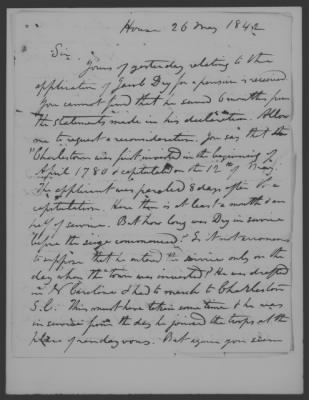 House 26 May 1842
Sir
Yours of yesterday relating to the
application of Jacob Dry for a pension is received
You cannot find that he served 6 months from
the statements made in his declaration. Allow
me to request a reconsideration. You say that the
"Charleston was first invested in the beginning of
April 1780 & capitulated on the 12th of May."
The applicant was paroled 8 days after the
capitulation. Here then is at least a month & an
half of service. But how long was Dry in service
before the siege commenced? Is it not erroneous
to suppose that he entered the service only on the
day when the town was invested? He was drafted
in N Carolina & had to march to Charleston
S.C. This must have taken some time & he was
in service from the day he joined the troops at the
place of rendezvous. But again you seem